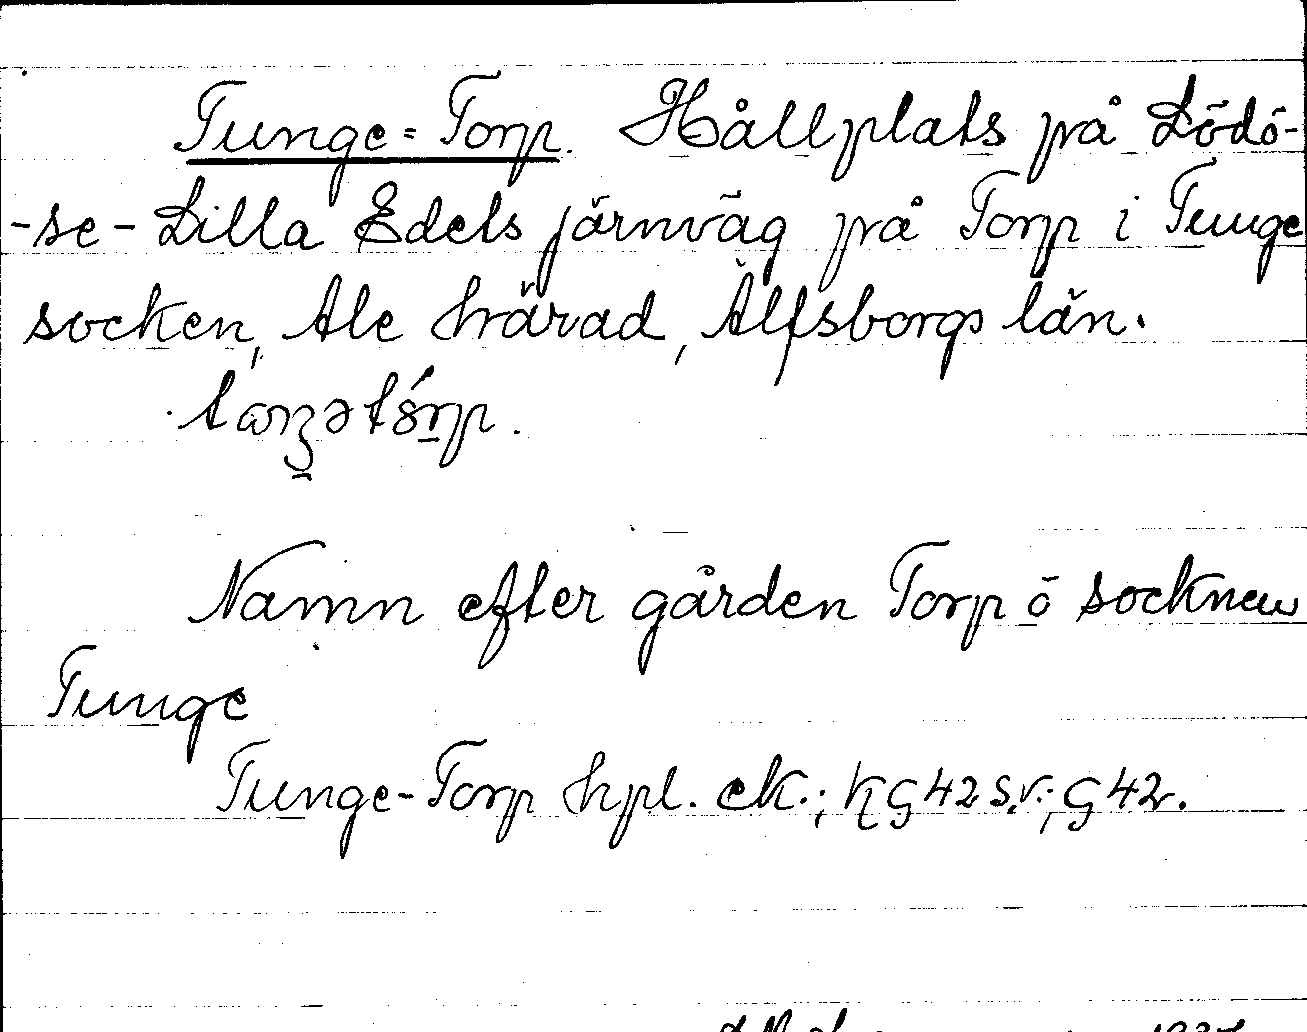 Tunge-Torp. Hållplats på Lödö-
-se - Lilla Edets järnväg på Torp i Tunge
socken, Ale härad, Älfsborgs län.
Namn efter gården Torp o socknen
Tunge
Tunge-Torp hpl. ek.; KG 42 s.v.; G 42.